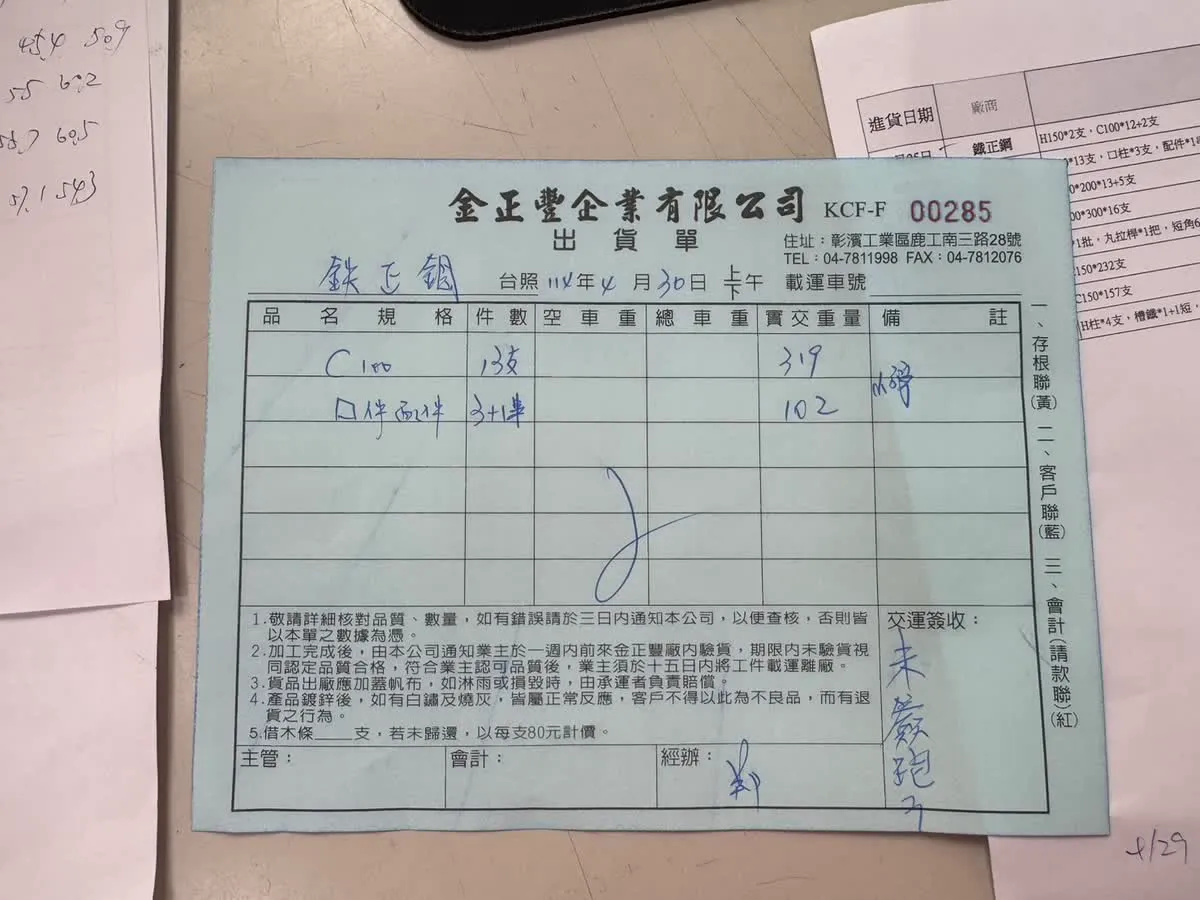 454 50.9
55 60.2
60.5
57.1 543
進貨日期 廠商
鐵正鋼 H150*2支，C100*12+2支
*13支，口柱*3支，配件*1
*200*13+5支
*300*16支
*1批，丸拉桿*1把，短角6
150*232支
C150*157支
H柱*4支，槽鐵*1+1短，
4/29
金正豐企業有限公司 KCF-F 00285
出貨單
住址：彰濱工業區鹿工南三路28號
TEL：04-7811998 FAX：04-7812076
鉄正鋼 台照 114年4月30日 上下午 載運車號
品名規格 件數 空車重 總車重 實交重量 備註
C100 13支 319
口件配件 3+1串 102
1.敬請詳細核對品質、數量，如有錯誤請於三日內通知本公司，以便查核，否則皆
以本單之數據為憑。
2.加工完成後，由本公司通知業主於一週內前來金正豐廠內驗貨，期限內未驗貨視
同認定品質合格，符合業主認可品質後，業主須於十五日內將工件載運離廠。
3.貨品出廠應加蓋帆布，如淋雨或損毀時，由承運者負責賠償。
4.產品鍍鋅後，如有白鏽及燒灰，皆屬正常反應，客戶不得以此為不良品，而有退
貨之行為。
5.借木條____支，若未歸還，以每支80元計價。
交運簽收：
未簽跑了
主管： 會計： 經辦：
一、存根聯(黃) 二、客戶聯(藍) 三、會計(請款聯)(紅)